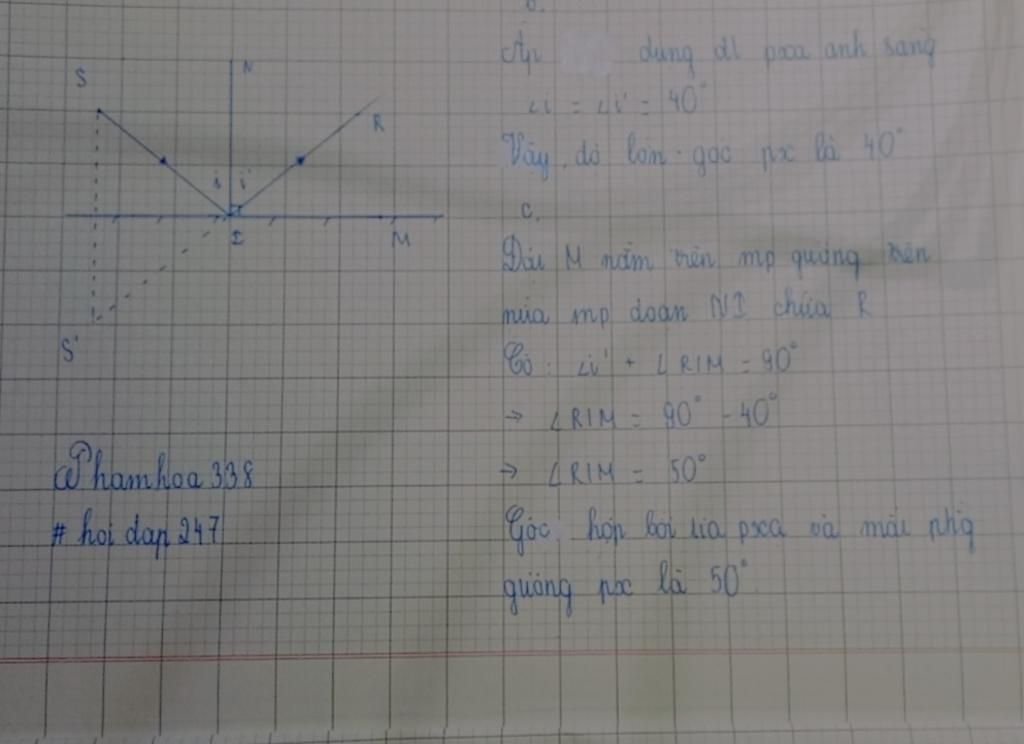 S
N
R
i i'
I
M
S'
@Phamhoa338
# hoi dap 247
b.
Áp dụng đl pxạ ánh sáng
∠i = ∠i' = 40°
Vậy độ lớn góc px là 40°
c,
M nằm trên mp gương trên
nửa mp đoạn NI chứa R
Có: ∠i' + ∠RIM = 90°
→ ∠RIM = 90° - 40°
→ ∠RIM = 50°
Góc hợp bởi tia pxạ và mặt phg
gương px là 50°